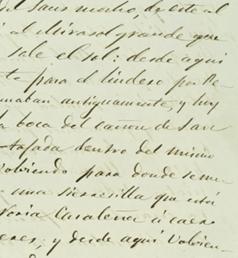 del Sauz mocho, de este al
al Mirasol grande que
sale el sol: desde aqui
para el lindero por
maban antiguamente, y hoy
la boca del cañon de San
dentro del mismo
volviendo para donde
una sierrecilla que está
Catalina á caer
y desde aqui volvien-